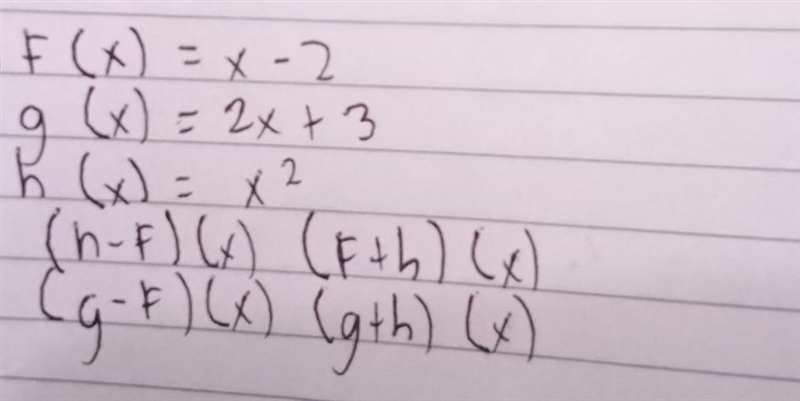 F(x) = x - 2
g(x) = 2x + 3
h(x) = x²
(h-F)(x) (F+h)(x)
(g-F)(x) (g+h)(x)